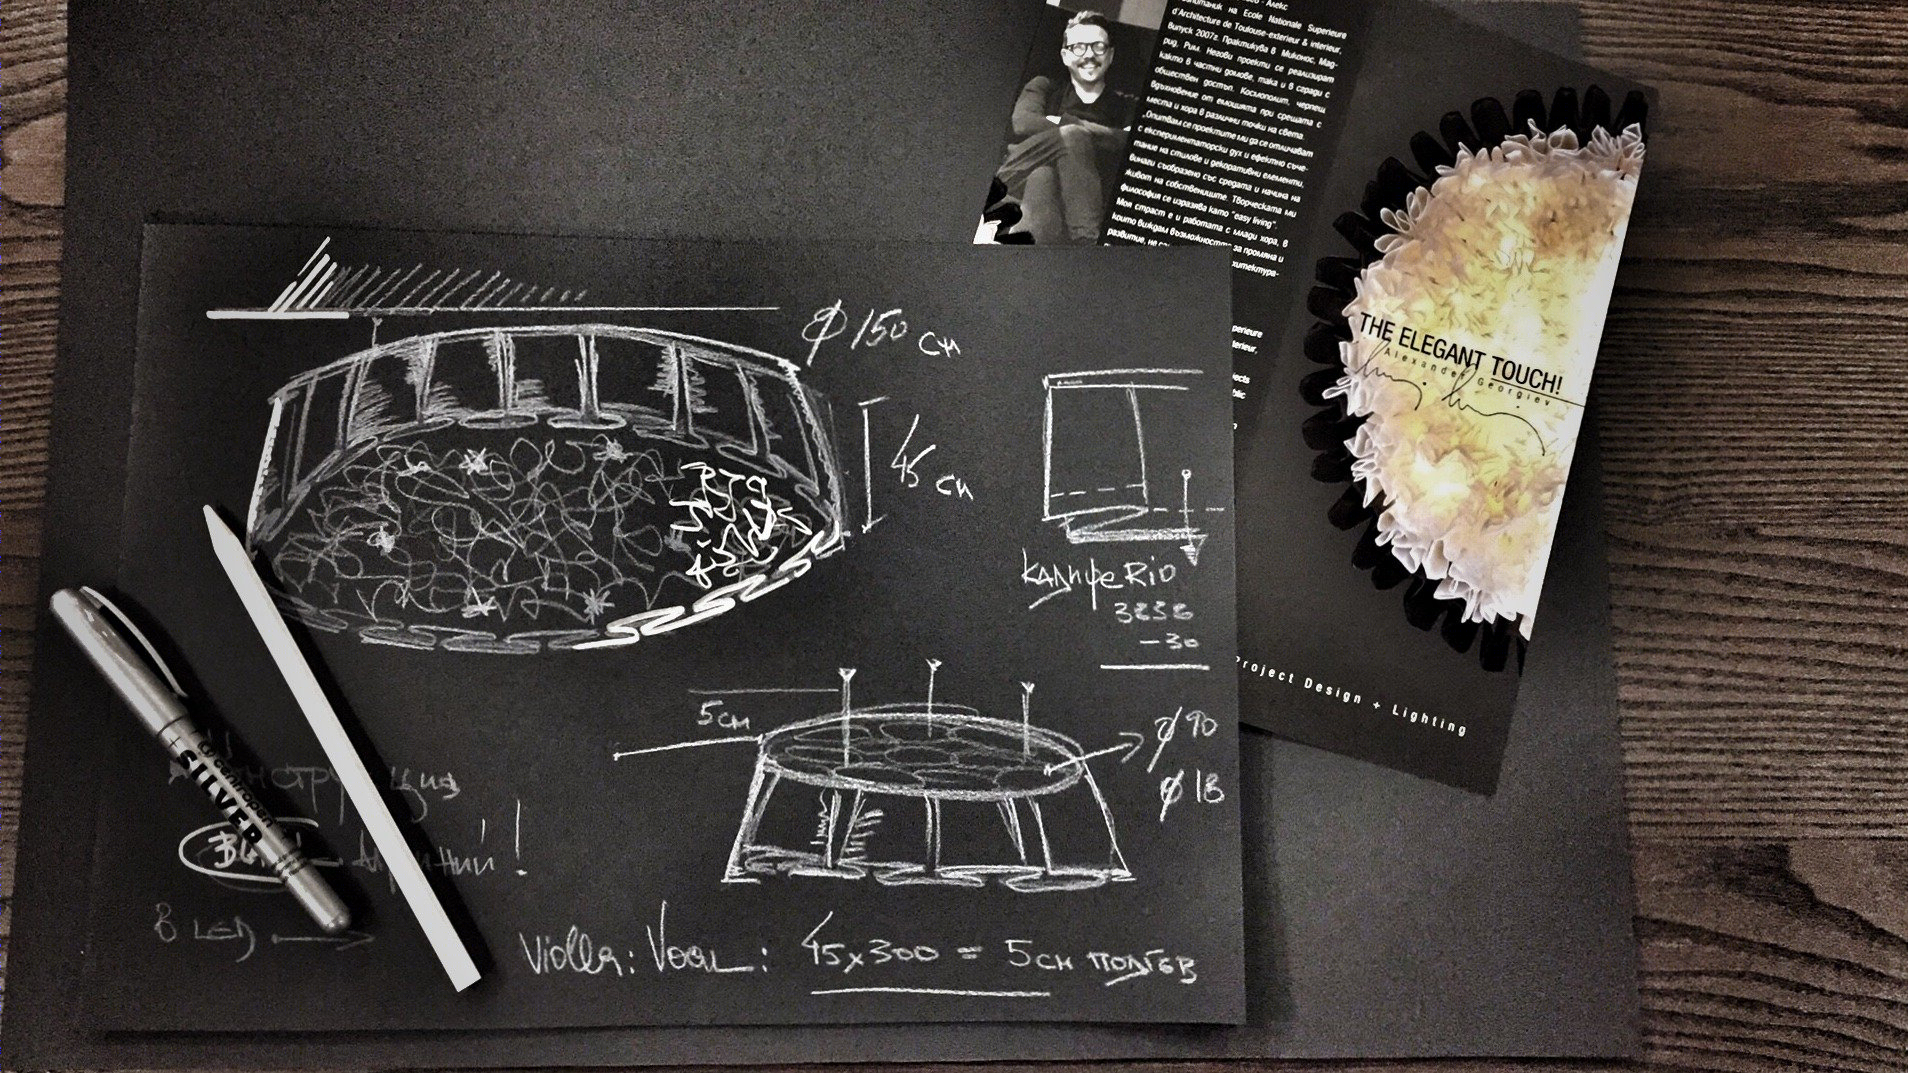 Алекс
на Ecole Nationale Superieure
d'Architecture de Toulouse-exterieur & interieur,
Випуск 2007г. Практикува в Миконос, Мад-
рид, Рим. Негови проекти се реализират
както в частни домове, така и в сгради с
обществен достъп. Космополит, черпещ
вдъхновение от емоцията при срещата с
места и хора в различни точки на света.
Опитвам се проектите ми да се отличават
с експериментаторски дух и ефектно съче-
тание на стилове и декоративни елементи,
винаги съобразено със средата и начина на
живот на собствениците. Творческата ми
философия се изразява като "easy living".
Моя страст е и работата с млади хора, в
които виждам възможността за промяна и
развитие, не
THE ELEGANT TOUCH!
Alexander Georgiev
Project Design + Lighting
ф 150 см
45 см
5см
ф 90
ф 18
SILVER
В LED
Violla: Voal: 45x300 = 5см подгъв